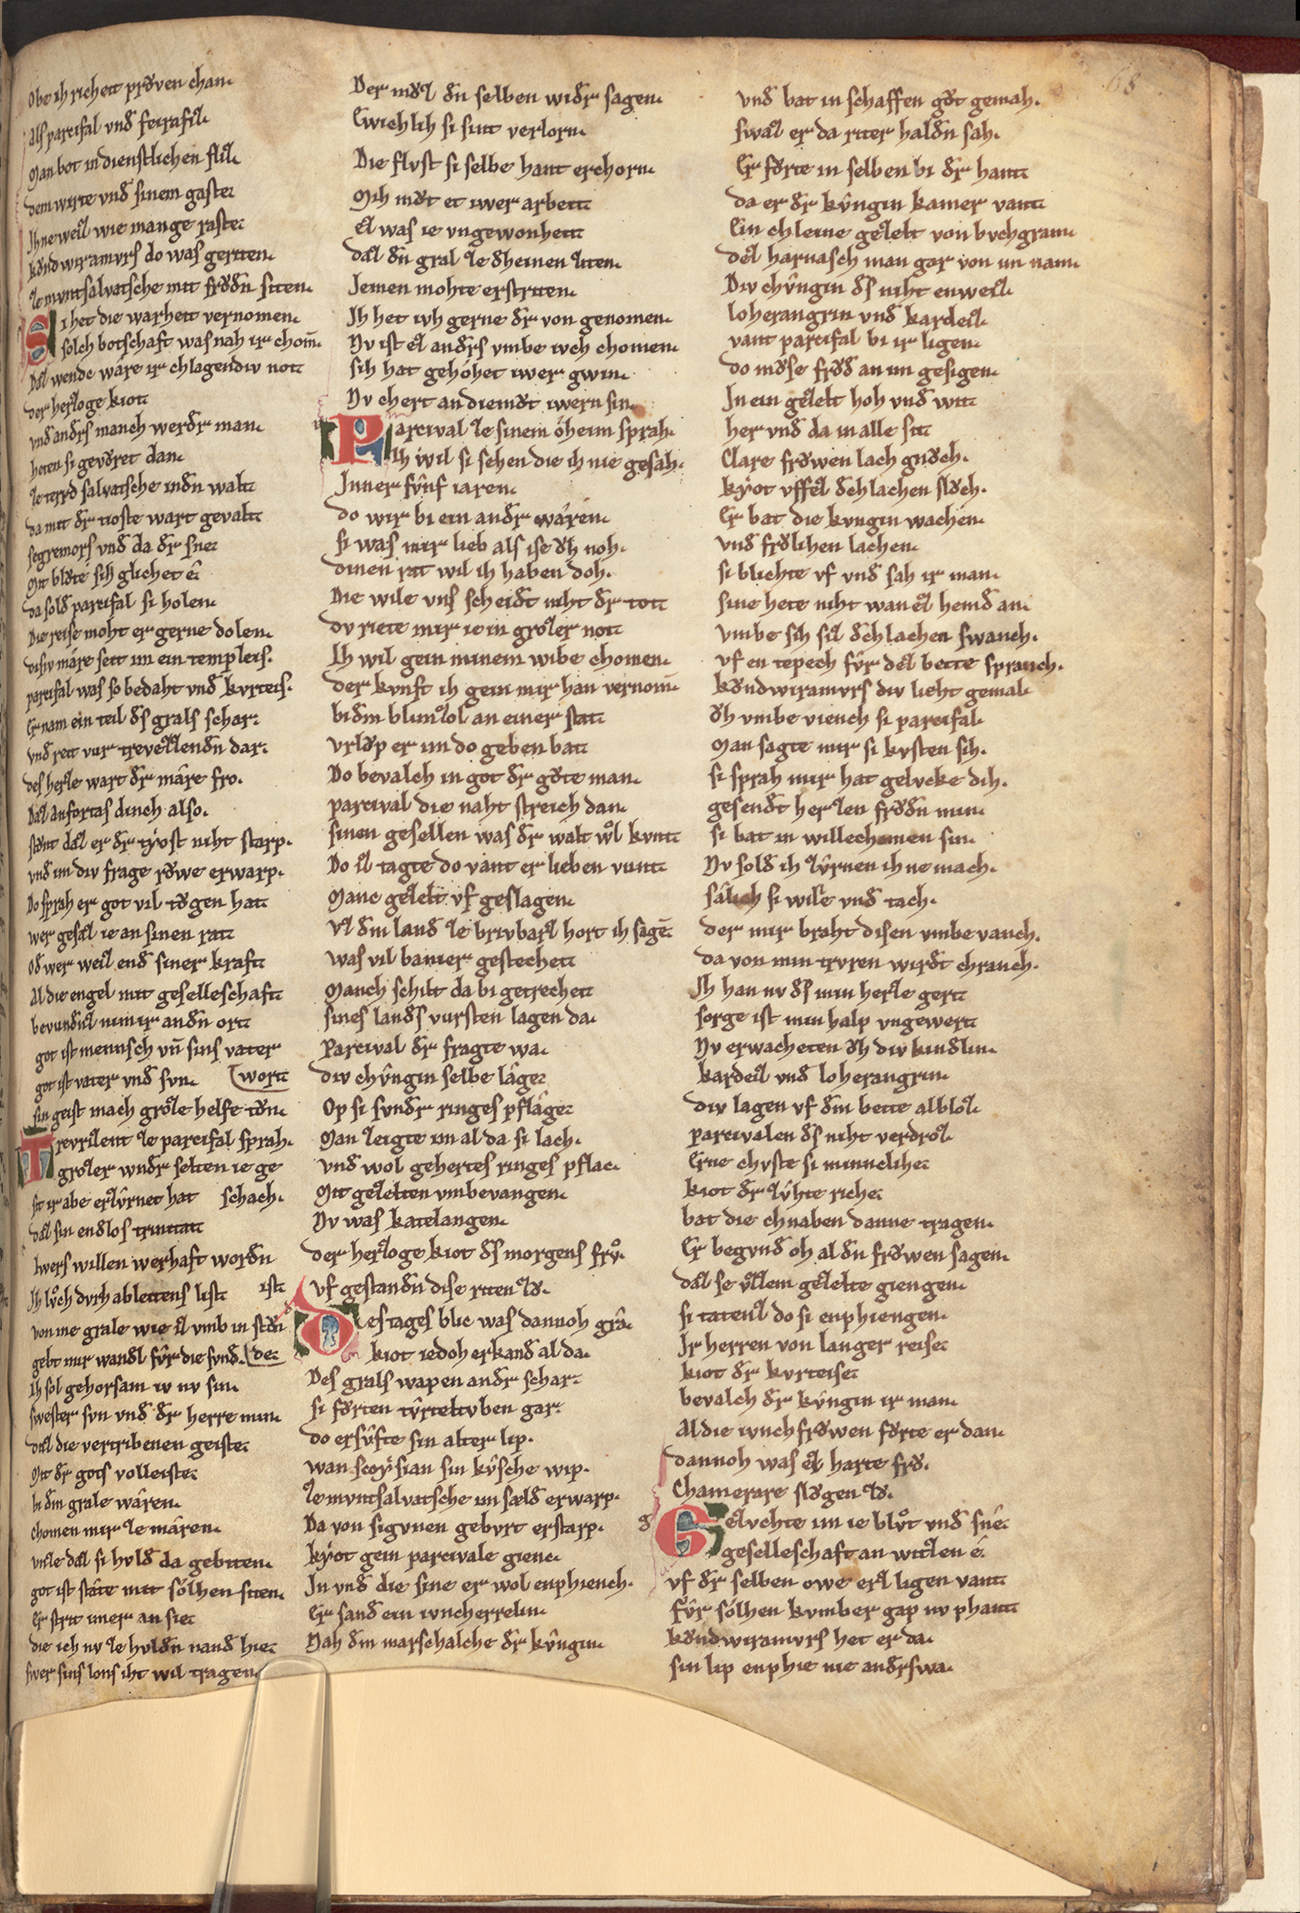 Obe ih richeit prỏven chan.
als parcifal vnd feirafiz.
Man bot in dienstlichen fliz.
dem wirte vnd sinem gaste.
Ihne weiz wie mange raste.
kỏndwiramvrs do was geriten.
ze mvntsalvatsche mit frỏdn siten.
Si het die warheit vernomen.
solch botschaft was nah ir chom̄.
Daz wende ware ir chlagendiv not.
der herzoge kiot
vnd anders manch werdr man.
heten si gevỏret dan.
ze terrd salvatsche indn walt.
da mit dr tioste wart gevalt
segremors vnd da dr sne.
Mit blỏte sih glichet ê
da sold parcifal si holen.
Die reise moht er gerne dolen.
disiv mâre seit im ein templeis.
parcifal was so bedaht vnd kvrteis.
Er nam ein teil ds grals schar.
vnd reit vur trevezzendn dar.
des herze wart dr mâre fro.
Daz anfortas dinch also.
stỏnt daz er dr tyost niht starp.
vnd im div frage rỏwe erwarp.
Do sprah er got vil tỏgen hat
wer gesaz ie an sinen rat
od wer weiz end siner kraft
Al die engel mit geselleschaft
bevundnz nimir andn ort
got ist mennsch vn̄ sins vater
got ist vater vnd svn. (wort
sin geist mach groze helfe tỏn.
Trevrizent ze parcifal sprah.
grozer wndr selten ie ge
sit ir abe erzvrnet hat schach.
daz sin endlos trinitat
Iwers willen werhaft wordn
Ih lỏch dvrh ableitens list ist.
von me grale wie iz vmb in stỏn
gebt mir wandl fvr die svnd. (de.
Ih sol gehorsam iv nv sin.
swester svn vnd dr herre min.
daz die vertribenen geiste.
Mit dr gots volleiste.
bi dm grale wâren.
chomen mir ze mâren.
vnze daz si hvld da gebiten.
got ist stâte mit sólhen siten.
Er strit imer an sie.
die ich nv ze hvldn nand hie.
swer sins lons iht wil tragen.
Der mỏz dn selben widr sagen.
Ewichlih si sint verlorn.
Die flvst si selbe hant erchorn.
Mih mỏt et iwer arbeit
Ez was ie vngewonheit
daz dn gral ze dheinen ziten.
Iemen mohte erstriten.
Ih het ivh gerne dr von genomen.
Nv ist ez andrs vmbe ivch chomen.
sih hat gehóhet iwer gwin.
Nv chert an diemỏt iwern sin.
Parcival ze sinem óheim sprah.
Ih wil si sehen die ih nie gesah.
Inner fvnf iaren.
do wir bi ein andr wâren.
si was mir lieb als ise ỏh noh.
dinen rat wil ih haben doh.
Die wile vns scheidt niht dr tot
dv riete mir ie in grozer not
Ih wil gein minem wibe chomen.
der kvnft ih gein mir han vernom̄
bi dm blimzol an einer stat
vrlỏp er im do geben bat
Do bevalch in got dr gỏte man.
parcival die naht streich dan.
sinen gesellen was dr walt wol kvnt
Do iz tagte do vant er lieben vunt
Manc gezelt vf geslagen.
Vz dm land ze brivbarz hort ih sagē
was vil banier gestechet
Manch schilt da bi getrechet
sines lands vursten lagen da.
Parcival dr fragte wa.
div chvngin selbe lâge.
Op si svndr ringes pflâge.
Man zeigte im al da si lach.
vnd wol gehertes ringes pflac.
Mit gezelten vmbevangen.
Nv was katelangen.
der herzoge kiot ds morgens frvo.
vf gestandn dise riten zỏ.
Des tages blic was dannoh grâ.
kiot iedoh erkand al da.
Des grals wapen andr schar.
si fỏrten tvrteltvben gar.
do ersvfte sin alter lip.
wan scoysian sin kvsche wip.
ze mvntsalvatsche im sæld erwarp.
Da von sigvnen gebvrt erstarp.
kyot gein parcivale gienc.
In vnd die sine er wol enphiench.
Er sand ein ivncherrelin.
Nah dm marschalche dr kvngin.
vnd bat in schaffen gỏt gemah.
swaz er da riter haldn sah.
Er fỏrte in selben bi dr hant
da er dr kvngin kamer vant
Ein chleine gezelt von bvchgram.
dez harnasch man gar von im nam.
Div chvngin ds niht enweiz.
loherangrin vnd kardeiz.
vant parcifal bi ir ligen.
do mỏse frỏd an im gesigen.
In ein gezelt hoh vnd wit
her vnd da in alle sit
Clare frỏwen lach gnỏch.
kyot vffez dchlachen slỏch.
Er bat die kvngin wachen.
vnd frỏlichen lachen.
si blichte vf vnd sah ir man.
sine hete niht wan ez hemd an.
vmbe sih siz dchlachen swanch.
vf en tepech fvr dez bette spranch.
kỏndwiramvrs div lieht gemal.
ỏh vmbe viench si parcifal.
Man sagte mir si kvsten sih.
si sprah mir hat gelvcke dih.
gesendt herzen frỏdn min.
si bat in willechomen sin.
Nv sold ih zvrnen ih ne mach.
sâlich si wile vnd tach.
der mir braht disen vmbevanch.
da von min trvren wirdt chranch.
Ih han nv ds min herze gert
sorge ist min halp vngewert
Nv erwacheten ỏh div kindlin.
kardeiz vnd loherangrin.
div lagen vf dm bette albloz.
parcivalen ds niht verdroz.
Erne chvste si minneclihe.
kiot dr zvhte riche.
bat die chnaben danne tragen.
Er begvnd oh al dn frỏwen sagen.
daz se vzzem gezelte giengen.
si tatenz do si enphiengen.
Ir herren von langer reise.
kiot dr kvrteise.
bevalch dr kvngin ir man.
Al die ivnchfrỏwen fỏrte er dan.
dannoh was ez harte frỏ.
Chamerare slỏgen zỏ.
Gezvchte im ie blvot vnd sne.
geselleschaft an witzen é.
vf dr selben owe erz ligen vant
fvr sólhen kvmber gap nv phant
kỏndwiramvrs het er da.
sin lip enphie nie andrswa.